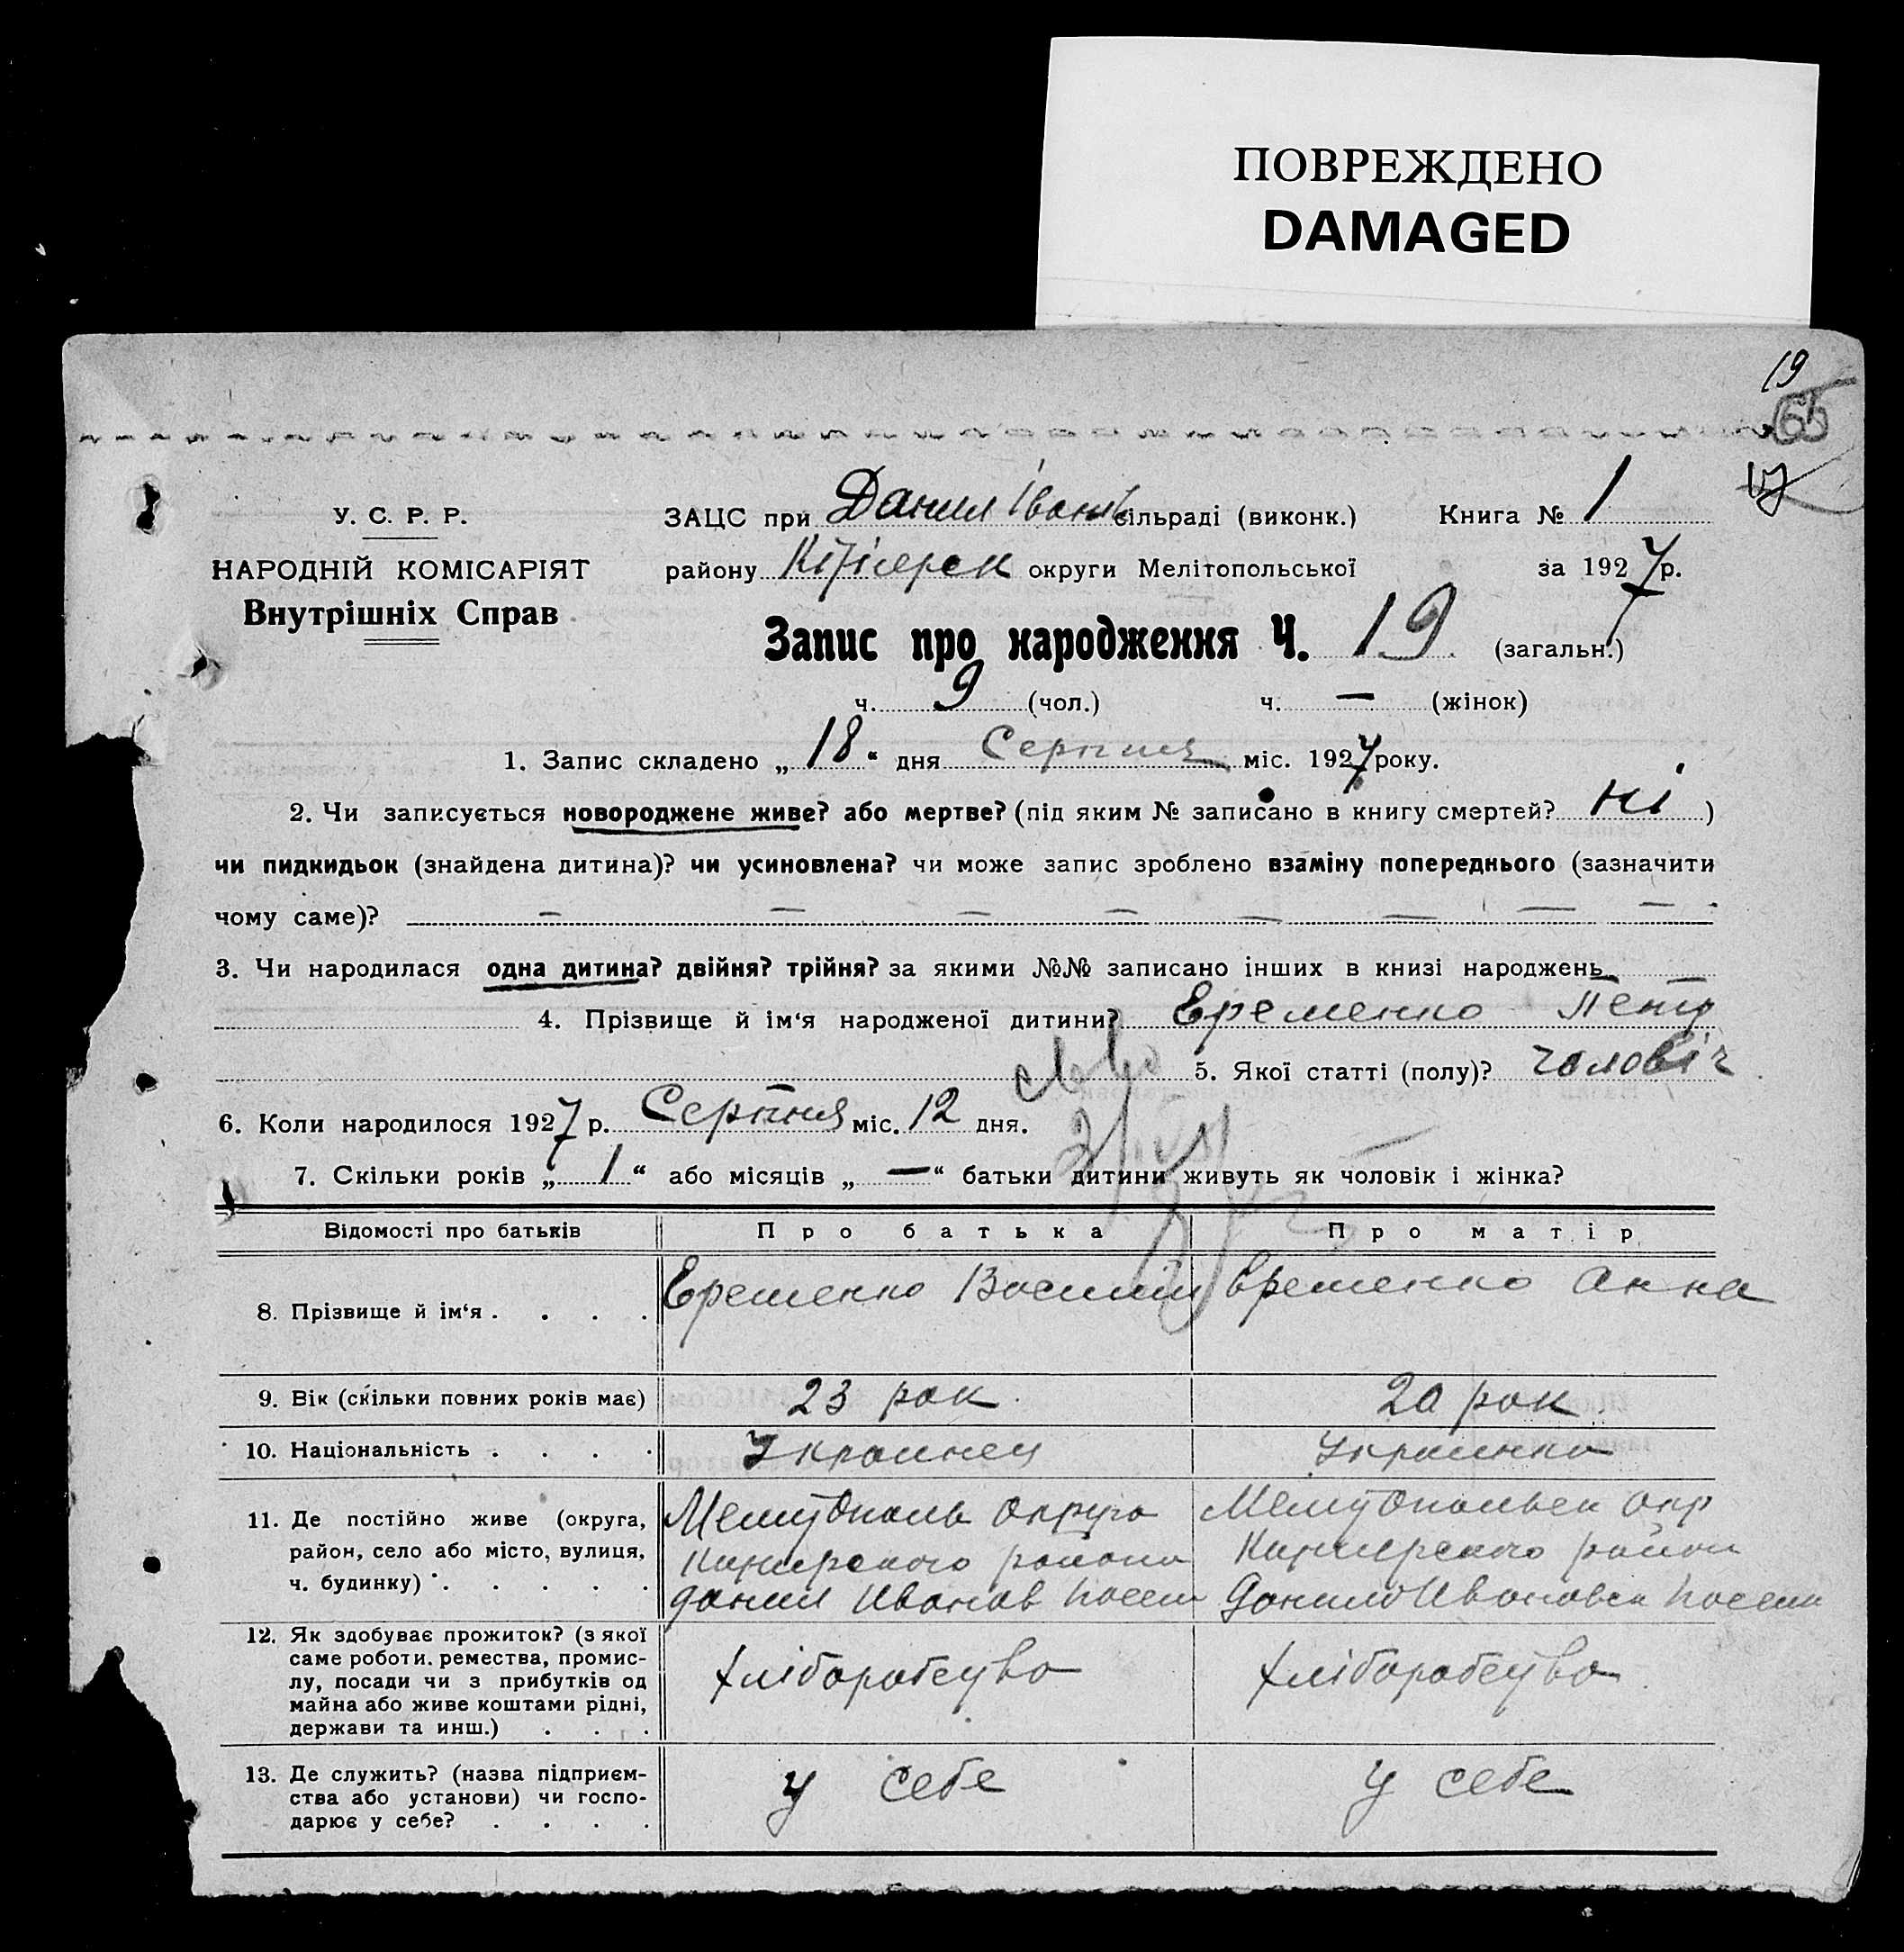 ПОВРЕЖДЕНО
DAMAGED
19
17
У. С. Р. Р.
НАРОДНІЙ КОМІСАРІЯТ
Внутрішніх Справ
ЗАЦС при Данил Іванів сільраді (виконк.) Книга № 1
району округи Мелітопольської за 1927 р.
Запис про народження Ч. 19 (загальн.)
ч. 9 (чол.) ч. — (жінок)
1. Запис складено „ 18 “ дня Серпня міс. 1927 року.
2. Чи записується новороджене живе? або мертве? (під яким № записано в книгу смертей? Ні )
чи пидкидьок (знайдена дитина)? чи усиновлена? чи може запис зроблено взаміну попереднього (зазначити
чому саме)? — — — — — — — —
3. Чи народилася одна дитина? двійня? трійня? за якими №№ записано інших в книзі народжень
4. Прізвище й ім‘я народженої дитини? Еременко Петр
5. Якої статті (полу)? чоловіч
6. Коли народилося 1927 р. Серпня міс. 12 дня.
7. Скільки років „ 1 “ або місяців „ — “ батьки дитини живуть як чоловік і жінка?
Відомості про батьків Про батька Про матір
8. Прізвище й ім‘я . . . . Еременко Василий Еременко Анна
9. Вік (скільки повних років має) 23 рок 20 рок
10. Національність . . . . Украинец Украинка
11. Де постійно живе (округа,
район, село або місто, вулиця,
ч. будинку) . . . . .
Мелитополь округа
района
Данил Иванов
Мелитопольск окр
район
Данило Ивановск
12. Як здобуває прожиток? (з якої
саме роботи. ремества, промис-
лу, посади чи з прибутків од
майна або живе коштами рідні,
держави та инш.) . . .
хліборобство хліборобство
13. Де служить? (назва підприєм-
ства або установи) чи госпо-
дарює у себе? . . . .
у себе у себе